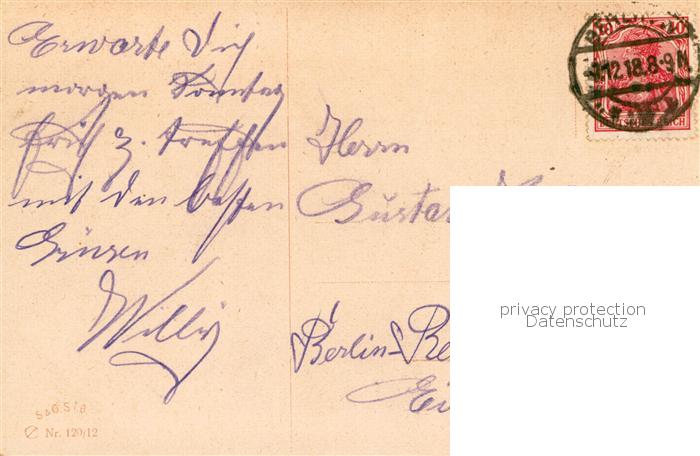 Erwarte Dich
morgen Sonntag
früh z. treffen
mit den besten
Grüßen
Willi
Herrn
Gustav
Berlin-Re
Ei
BERLIN
12.18.8-9N
DEUTSCHES REICH
S&G.S.i.B
Nr. 120/12
privacy protection
Datenschutz